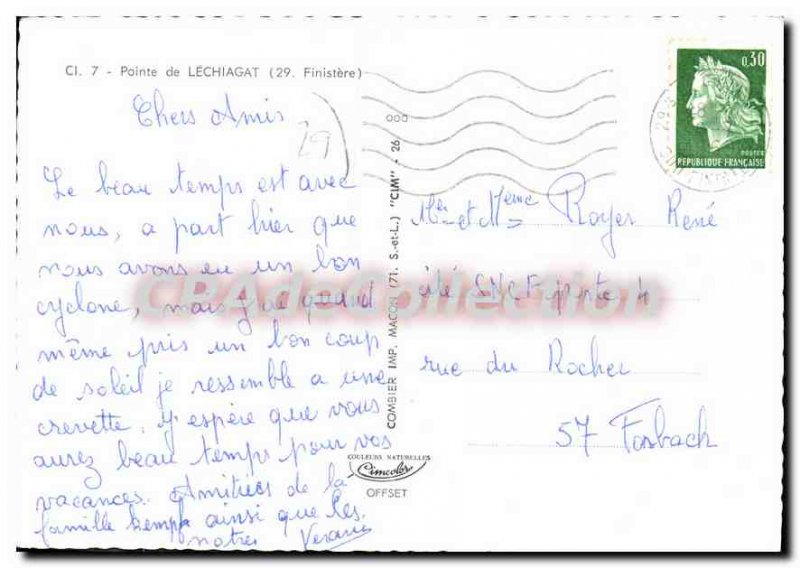 Cl. 7 - Pointe de LÉCHIAGAT (29. Finistère)
Chers Amis
29
Le beau temps est avec
nous, a part hier que
nous avons eu un bon
cyclone, mais j'ai quand
même pris un bon coup
de soleil je ressemble a une
crevette. J'espère que vous
aurez beau temps pour vos
vacances. Amitiés de la
famille ainsi que les
notres
COMBIER IMP. MACON (71. S.-et-L.) "CIM" - 26 000
COULEURS NATURELLES
Cimcolor
OFFSET
0,30
POSTES
REPUBLIQUE FRANÇAISE
Mr et Mme Royer René
cité SNCF porte 4
rue du Rocher
57 Forbach
CPAdeCollection